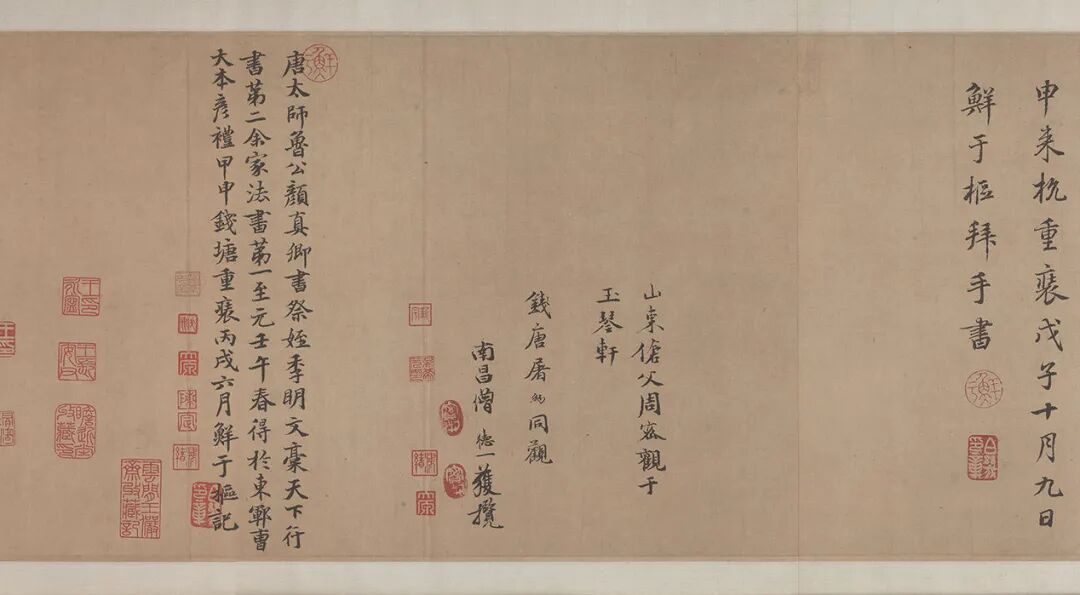 申来杭重裝戊子十月九日
鮮于樞拜手書
山東傖父周密觀于
玉琴軒
錢唐屠 同觀
南昌僧德一獲攬
唐太師魯公顏真卿書祭姪季明文藁天下行
書第二余家法書第一至元壬午春得於東鄆曹
大本彥禮甲申錢塘重裝丙戌六月鮮于樞記